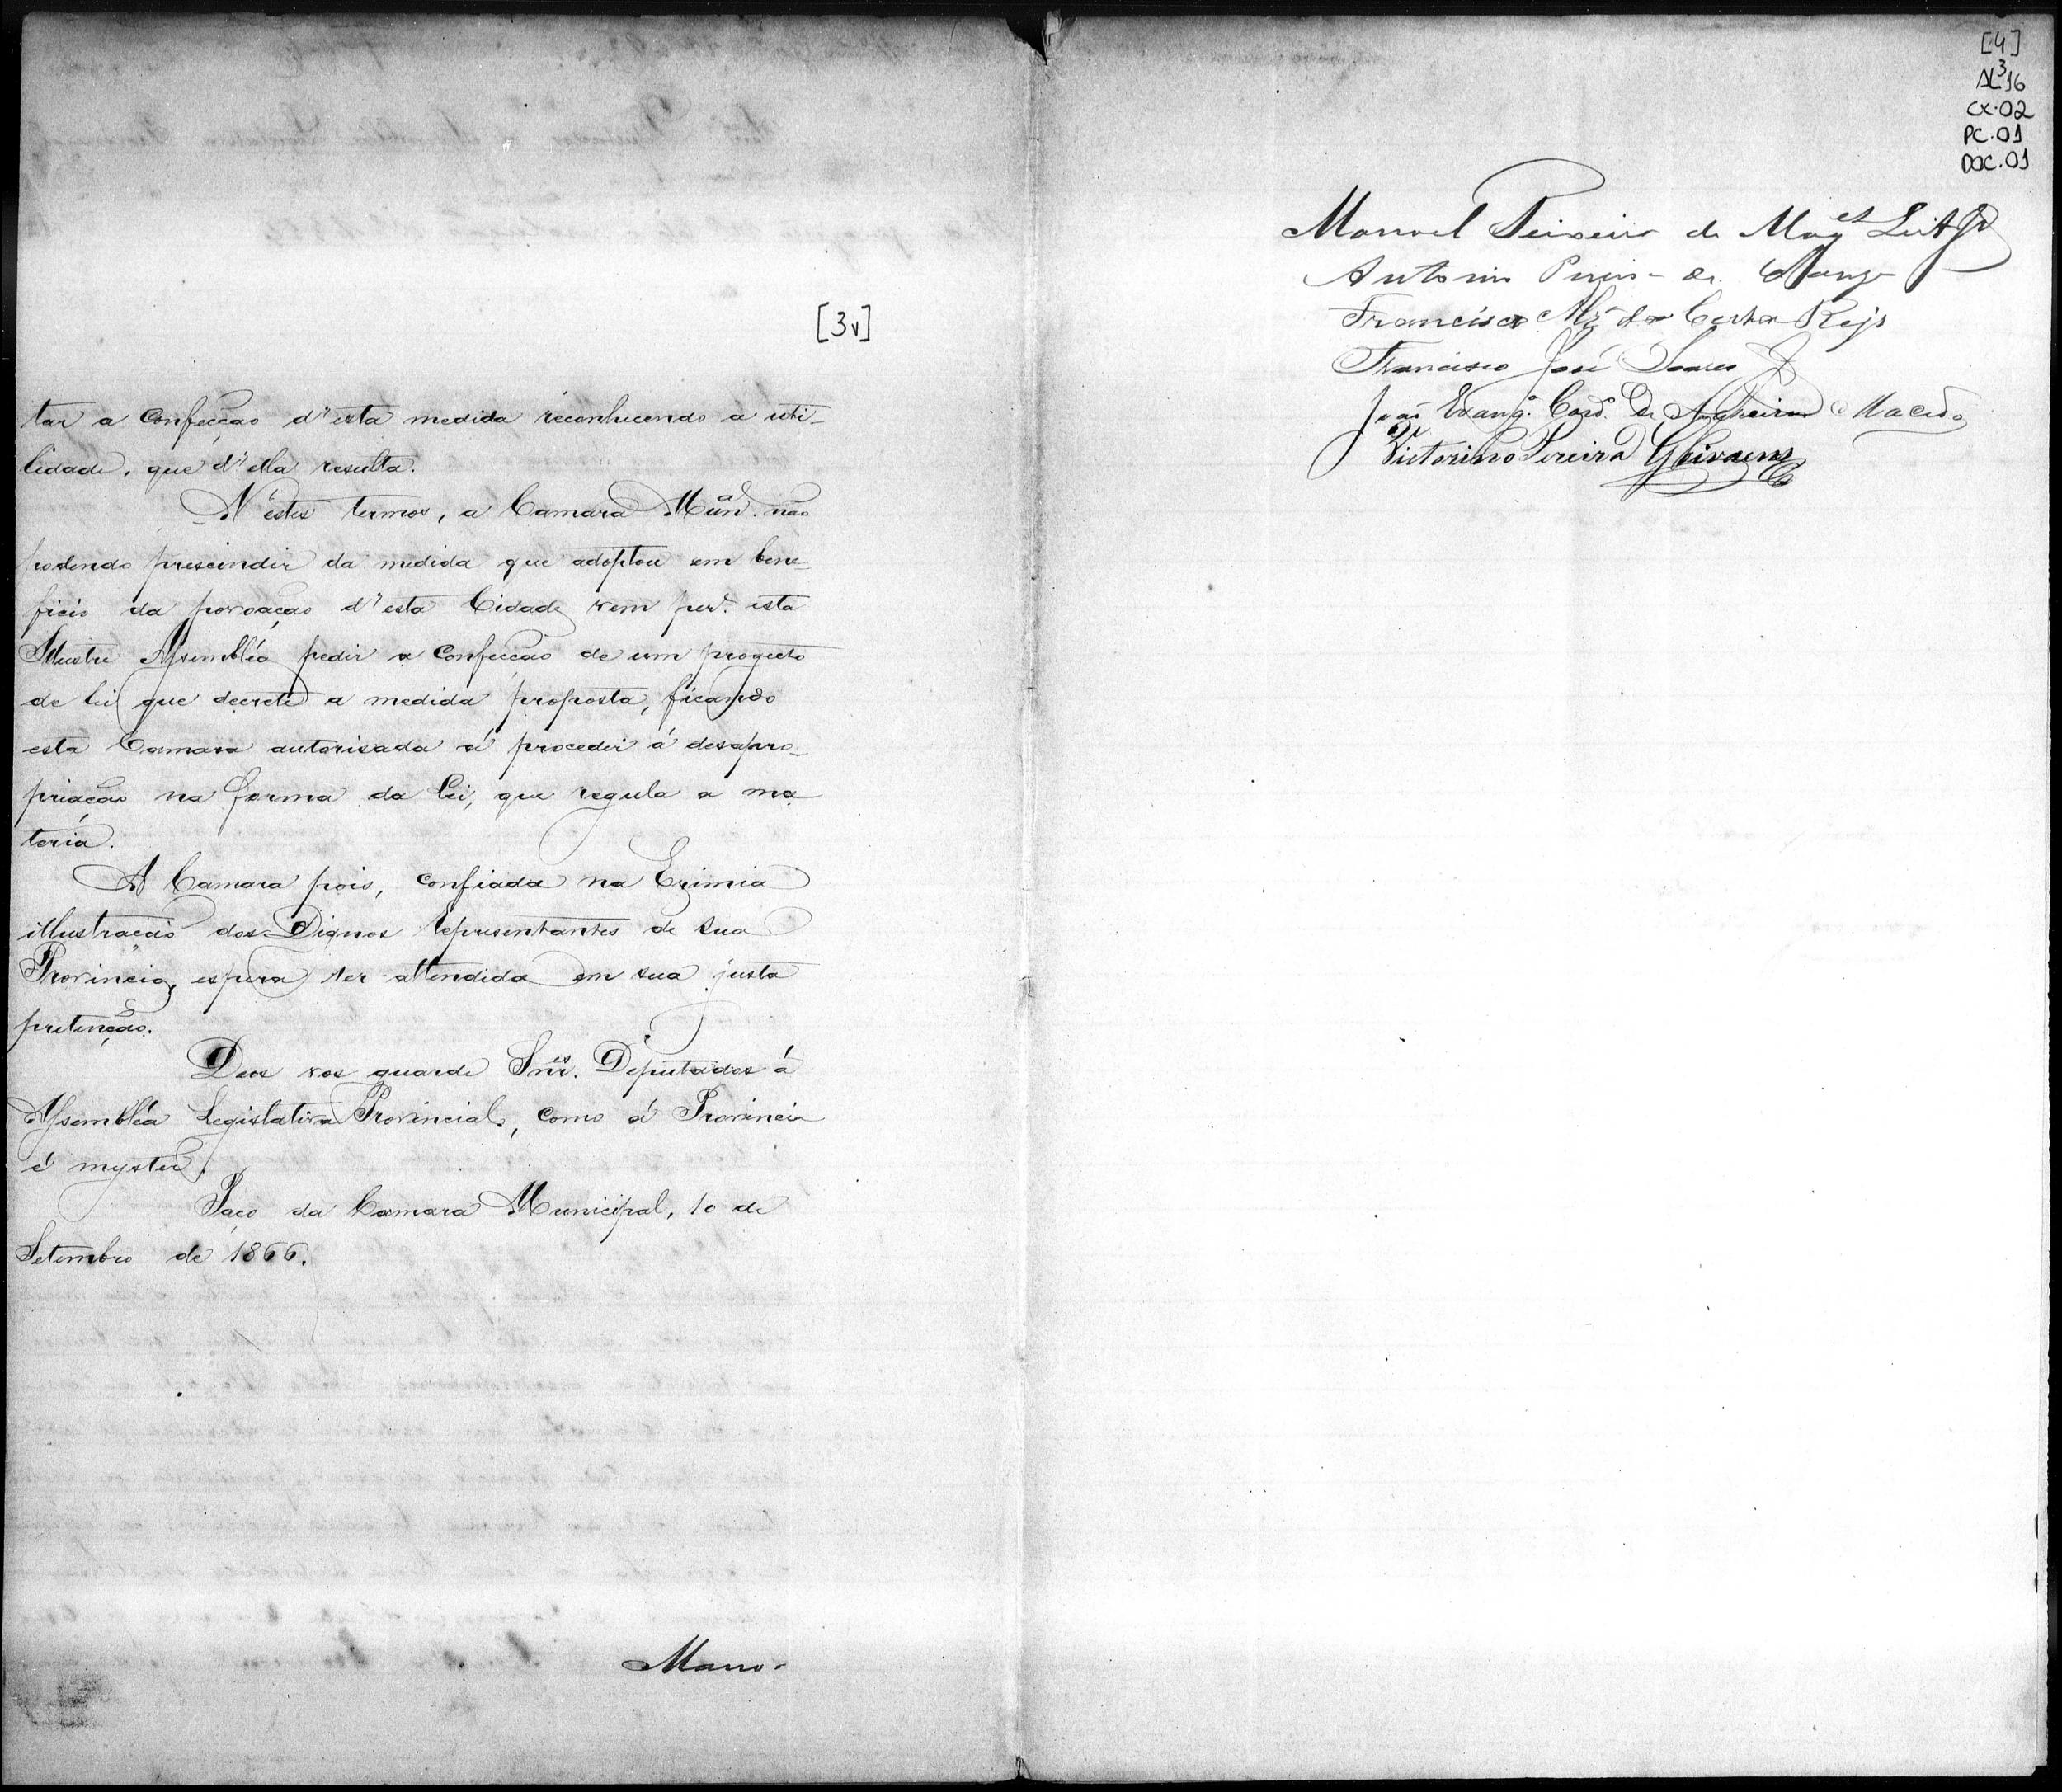 [3v]
tar a Confecção d'esta medida reconhecendo a uti-
lidade, que d'ella resulta.
N'estes termos, a Camara Mun.al não
podendo prescindir da medida que adoptou em bene-
ficio da povoação d'esta Cidade vem per.e esta
Illustre Assembléa pedir a Confecção de um progecto
de lei que decrete a medida proposta, ficando
esta Camara autorisada á proceder á desapro-
priação na forma da Lei, que regula a ma
teria.
A Camara pois, confiada na Eximia
illustração dos Dignos Representantes de sua
Provincia, espera ser attendida em sua justa
pretenção.
Deos vos guarde Snr.es Deputados á
Assembléa Legislativa Provincial, como á Provincia
é myster.
Paço da Camara Municipal, 10 de
Setembro de 1866.
Mano-
[4]
AL³16
CX.02
PC.01
DOC.01
Manoel Teixeira de Mag.es
Antonio de
Francisco Alz' da Costa Reis
Francisco José Soares
João Evang.a Macedo
Victorino Pereira